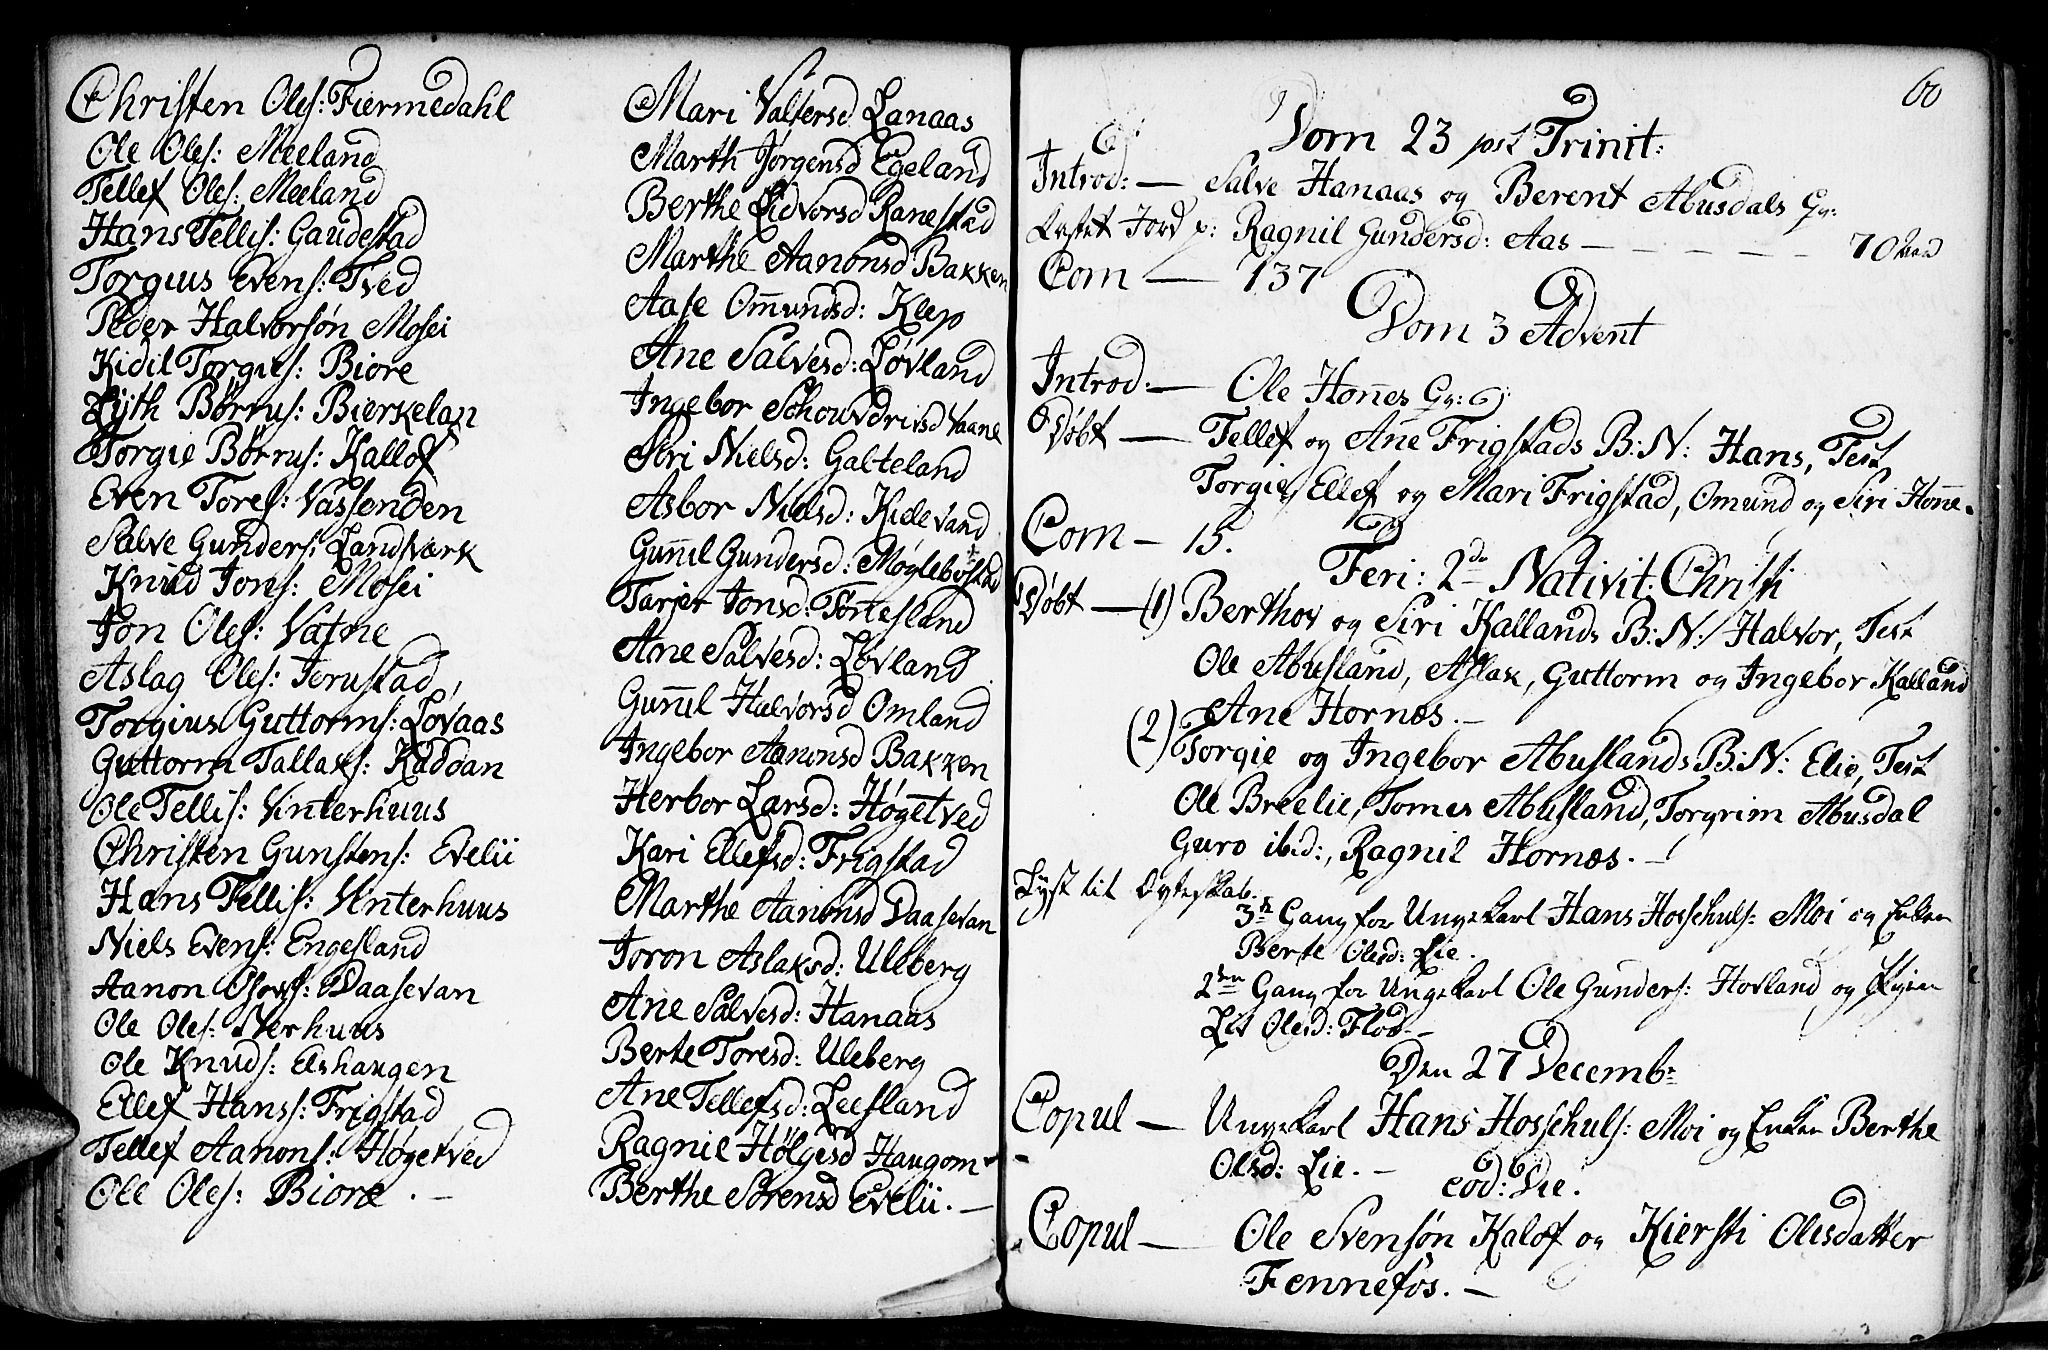 Christen Oles: Fiermedahl
Ole Oles: Meeland
Tellef Oles: Meeland
Hans Tellis: Gaudestad
Torgius Evens: Tved
Peder Halvorsøn Mosei
Kidil Torgius: Biore
Lyth Børrus: Bierkelan
Torgie Børrus: Kallof
Even Tores: Vassenden
Salve Gunders: Landsværk
Knud Jons: Mosei
Jon Oles: Vatne
Aslag Oles: Jerustad
Torgius Guttorms: Lovaas
Guttorm Tallaks: Raddan
Ole Tellis: Vinterhuus
Christen Gunstens: Evelii
Hans Tellis: Vinterhuus
Niels Evens: Engesland
Aanon Daasevan
Ole Oles: Nerhuus
Ole Knuds: Elshaugen
Ellef Hanss: Frigstad
Tellef Aanons: Høgetved
Ole Oles: Biore . —
Mari Valtersd Lanaas
Marth Jørgensd Egeland
Berthe Eidvorsd Ranestad
Marthe Aanonsd Bakken
Aase Omundsd: Klep
Ane Salvesd: Løvland
Ingebor Schouvdrivsd Vaane
Siri Nielsd: Galteland
Asbor Nielsd: Kielevand
Gunnil Gundersd: Møglebøstad
Tarjer Jonsd: Tortesland
Ane Salvesd: Løvland
Gunnil Halvorsd Omland
Ingebor Aanonsd Bakken
Herbor Larsd: Høgetved
Kari Ellefsd: Frigstad
Marthe Aanonsd Daasevan
Joron Aslaksd: Uleberg
Ane Salvesd: Hanaas
Berte Toresd: Uleberg
Ane Tellefsd: Leesland
Ragnil Hølgesd Haugom
Berthe Sørensd Evelii. —
60
Dom 23 post Trinit:
Introd: — Salve Hanaas og Berent Abusdals Qv:
Kastet Jord p: Ragnil Gundersd: Aas — — — — — 70
Com — 137
Dom 3 Advent
Introd: — Ole Honnes Qv:
Døbt — Tellef og Ane Frigstads B: N: Hans, Test
Torgie, Ellef og Mari Frigstad, Omund og Siri Honne.
Com — 15.
Feri: 2da Nativit: Christi
Døbt — (1) Berthov og Siri Kallands B: N: Halvor, Test
Ole Abusland, Aslak, Guttorm og Ingebor Kalland
Ane Hornæs. —
(2) Torgie og Ingebor Abuslands B: N: Elie, Test
Ole Breelie, Tomes Abusland, Torgrim Abusdal
Guro ibid:, Ragnil Hornæs. —
Lyst til Egteskab.
3de Gang for Ungekarl Hans Hosschuls: Moi og Enken
Berte Olesd: Lie.
2den Gang for Ungekarl Ole Gunders: Hovland og Pigen
Lis Olesd: Flod —
Den 27 Decembr
Copul — Ungekarl Hans Hosschuls: Moi og Enken Berthe
Olsd: Lie. —
eod: Die.
Copul — Ole Svensøn Kalof og Kiersti Olesdatter
Fennefos. —